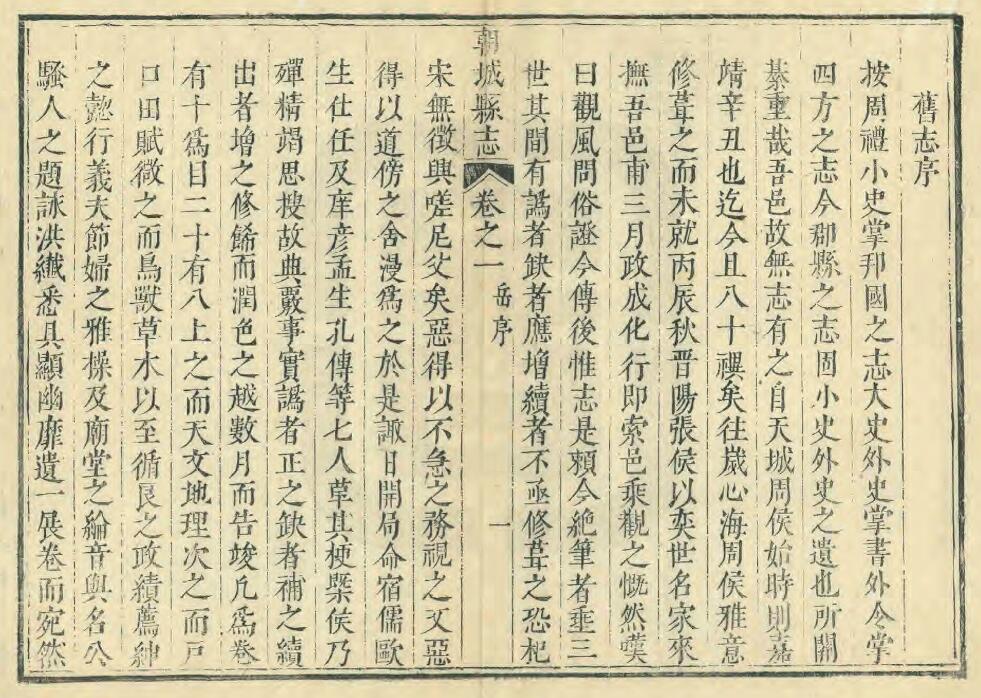 舊志序
按周禮小史掌邦國之志大史外史掌書外令掌
四方之志今郡縣之志固小史外史之遺也所關
綦重哉吾邑故無志有之自天城周侯始時則嘉
靖辛丑也迄今且八十禩矣往嵗心海周侯雅意
修葺之而未就丙辰秋晋陽張侯以奕世名家來
撫吾邑甫三月政成化行即索邑乘觀之慨然嘆
曰觀風問俗證今傳後惟志是賴今絶筆者垂三
世其間有譌者缺者應增續者不亟修葺之恐杞
朝城縣志 卷之一 岳序 一
宋無徵興嗟尼父矣惡得以不急之務視之又惡
得以道傍之舍漫爲之於是諏日開局命宿儒歐
生仕任及庠彦孟生孔傳等七人草其梗槩侯乃
殫精竭思搜故典覈事實譌者正之缺者補之續
出者增之修餙而潤色之越數月而告竣凡爲卷
有十爲目二十有八上之而天文地理次之而戸
口田賦微之而鳥獸草木以至循良之政績薦紳
之懿行義夫節婦之雅操及廟堂之綸音與名公
騷人之題詠洪纎悉具顯幽靡遺一展卷而宛然